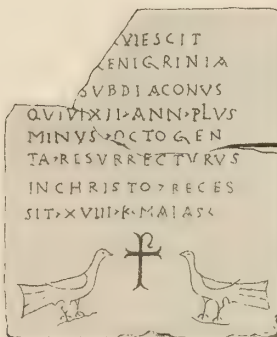 VIESCIT
ENIGRINIA
SUBDIACONUS
QUIVIXII·ANN·PLVS
MINVS·OCTOGEN
TA·RESURRECTVRVS
INCHRISTO·RECES
SIT·XVIII·K·MAIAS